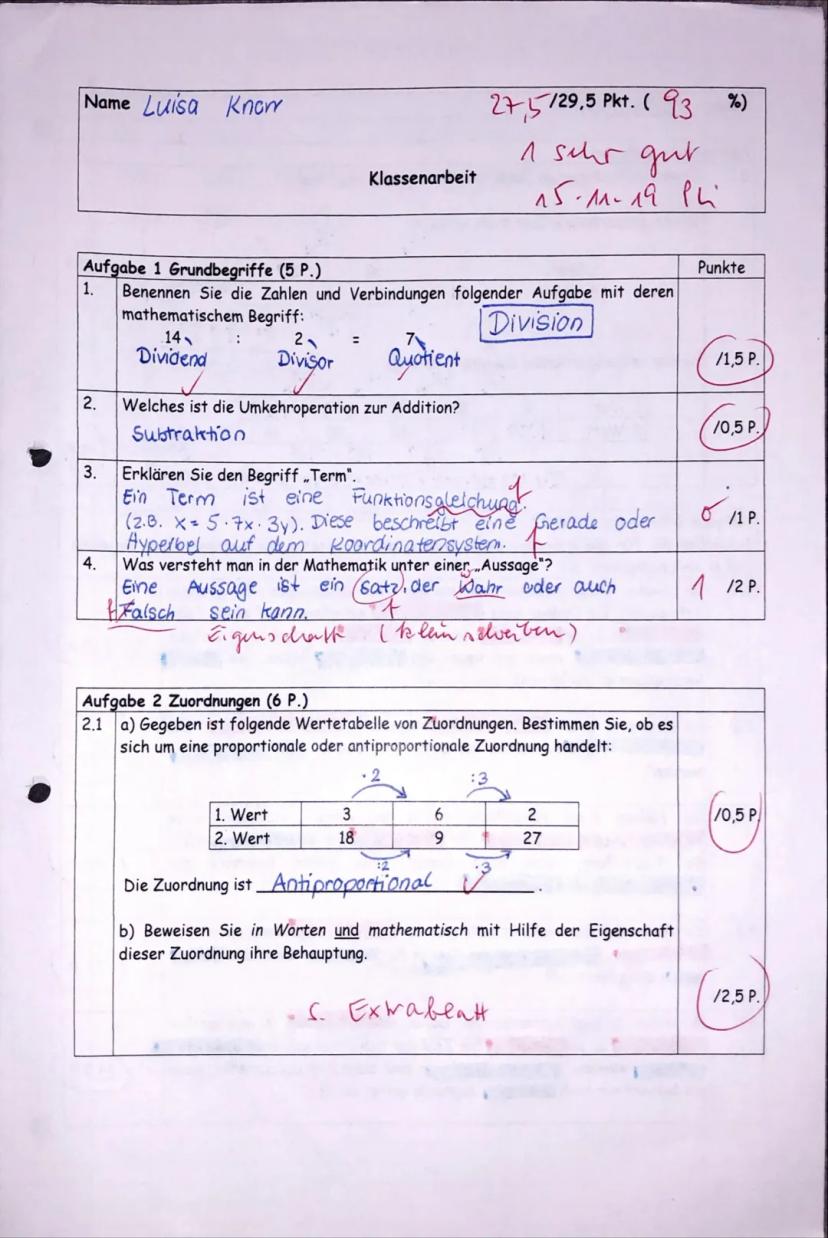 Name Luisa Knorr 27,5/29,5 Pkt. ( 93 %)
1 sehr gut
Klassenarbeit
15.11.19
Aufgabe 1 Grundbegriffe (5 P.) Punkte
1. Benennen Sie die Zahlen und Verbindungen folgender Aufgabe mit deren
mathematischem Begriff: Division
14 : 2 = 7
Dividend Divisor Quotient /1,5 P.
2. Welches ist die Umkehroperation zur Addition?
Subtraktion /0,5 P.
3. Erklären Sie den Begriff „Term".
Ein Term ist eine Funktionsgleichung. f
(z.B. x = 5·7x·3y). Diese beschreibt eine Gerade oder 0 /1 P.
Hyperbel auf dem Koordinatensystem. f
4. Was versteht man in der Mathematik unter einer „Aussage"?
Eine Aussage ist ein Satz, der Wahr oder auch 1 /2 P.
f Falsch sein kann. f
Eigenschaft (klein schreiben)
Aufgabe 2 Zuordnungen (6 P.)
2.1 a) Gegeben ist folgende Wertetabelle von Zuordnungen. Bestimmen Sie, ob es
sich um eine proportionale oder antiproportionale Zuordnung handelt:
·2 :3
1. Wert 3 6 2
2. Wert 18 9 27 /0,5 P.
:2 ·3
Die Zuordnung ist Antiproportional.
b) Beweisen Sie in Worten und mathematisch mit Hilfe der Eigenschaft
dieser Zuordnung ihre Behauptung.
/2,5 P.
s. Extrablatt